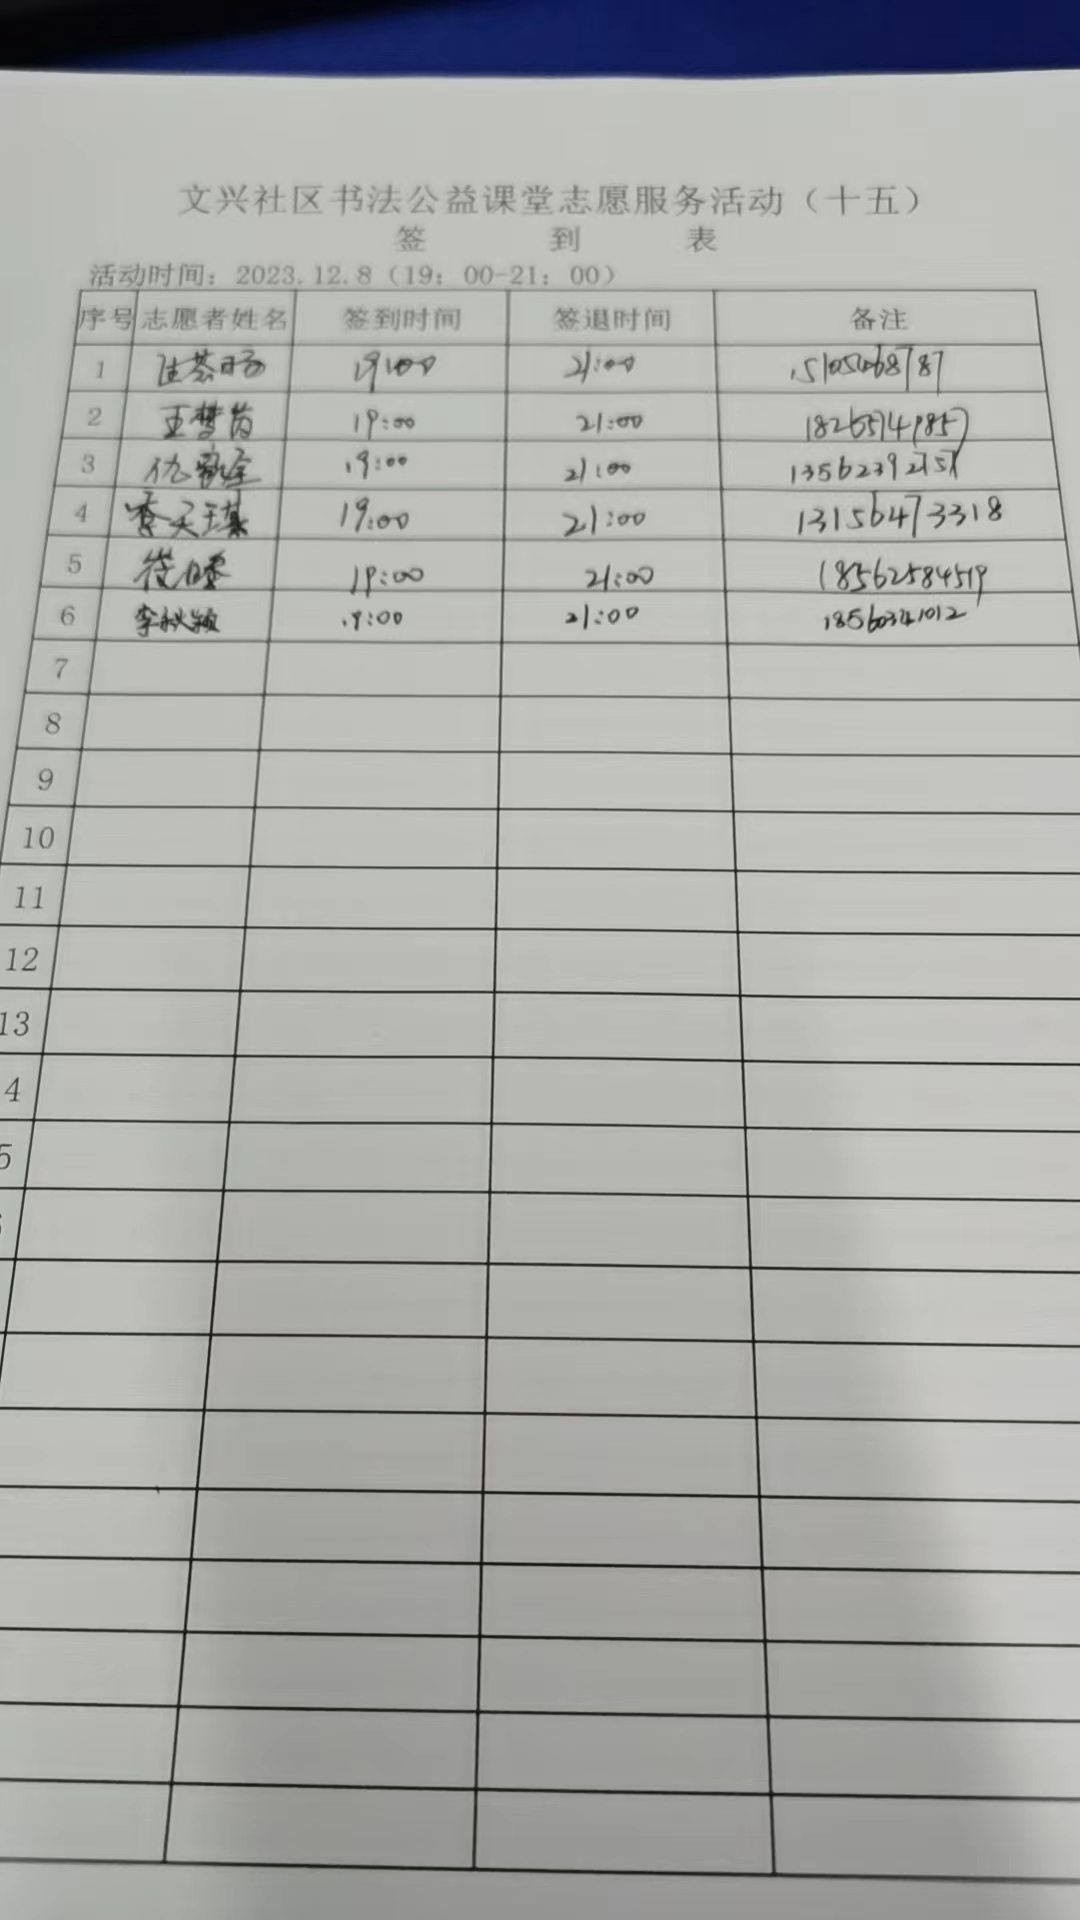 文兴社区书法公益课堂志愿服务活动（十五）
签 到 表
活动时间：2023.12.8（19：00-21：00）
序号 志愿者姓名 签到时间 签退时间 备注
1 19:00 21:00
2 王梦茵 19:00 21:00
3 19:00 21:00
4 19:00 21:00 13156473318
5 19:00 21:00 18562584519
6 19:00 21:00
7
8
9
10
11
12
13
4
5